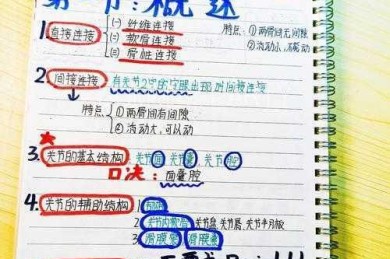 第一节:概述
1. 直接连接
(一) 纤维连接
(二) 软骨连接
(三) 骨性连接
特点: ① 两骨间无间隙
② 活动小,不能动
2. 间接连接
有关节2字的字眼出现 时间接连接
特点 ① 两骨间有间隙
② 活动大,可以动
3. 关节的基本结构: 关节面 关节囊、关节腔
口决: 面囊腔
4. 关节的辅助结构:
1. 韧带
2. 关节内软骨: 关节盘、关节唇、关节半月板
3. 滑膜襞 滑膜囊